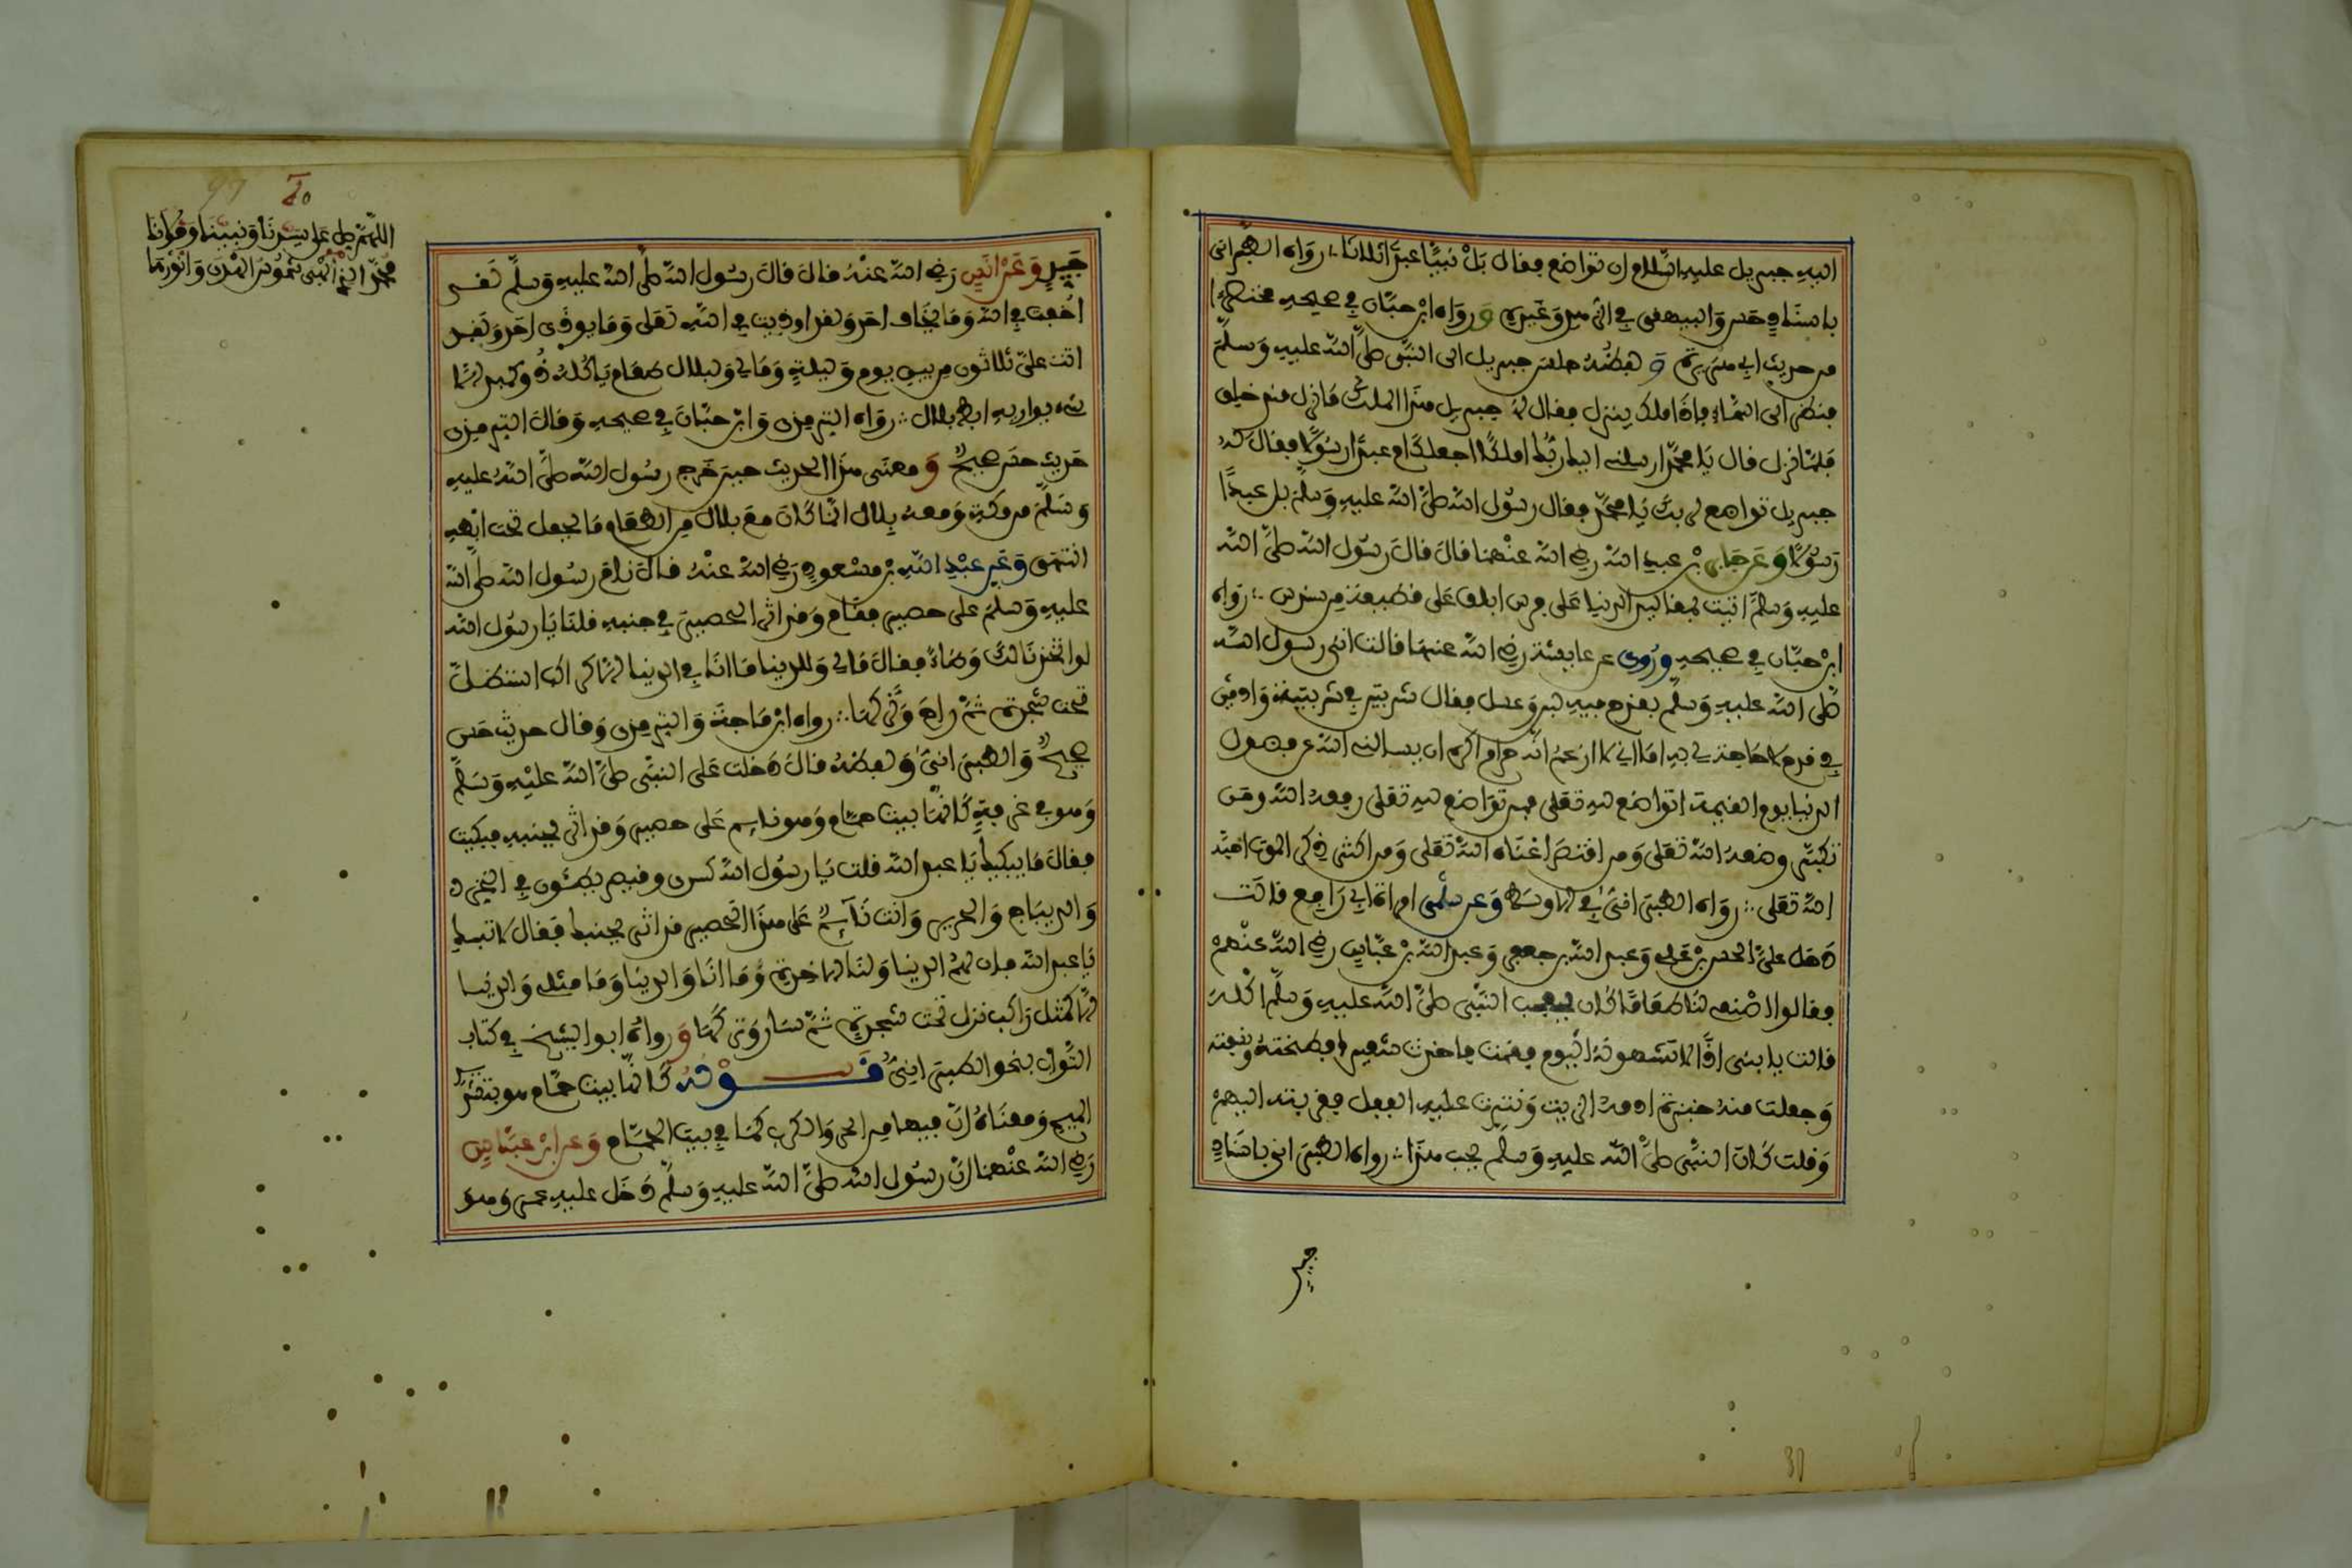 اليه جبريل عليه السلام ان تواضع فقال بل نبيا عبدا ثلاثا ∴ رواه الطبراني
باسناد حسن والبيهقي في الزهد وغيره ورواه ابن حبان في صحيحه مختصرا
من حديث ابي هريرة ولفظه جلس جبريل الى النبي صلى الله عليه وسلم
فنظر الى السماء فاذا ملك ينزل فقال له جبريل هذا الملك ما نزل منذ خلق
فلما نزل قال يا محمد ارسلني اليك ربك املكا اجعلك ام عبدا رسولا فقال له
جبريل تواضع لربك يا محمد فقال رسول الله صلى الله عليه وسلم بل عبدا
رسولا وعن جابر بن عبد الله رضي الله عنهما قال قال رسول الله صلى الله
عليه وسلم اتيت بمقاليد الدنيا على فرس ابلق على قطيفة من سندس ∴ رواه
ابن حبان في صحيحه وروي عن عايشة رضي الله عنها قالت اتي رسول الله
صلى الله عليه وسلم بقدح فيه لبن وعسل فقال شربتين في شربة وادمين
في قدح لا حاجة لي به اما اني لا ازعم انه حرام اكره ان يسالني الله عن فضول
الدنيا يوم القيمة اتواضع لله تعلى فمن تواضع لله تعلى رفعه الله ومن
تكبر وضعه الله تعلى ومن اقتصد اغناه الله تعلى ومن اكثر ذكر الموت احبه
الله تعلى ∴ رواه الطبراني في الاوسط وعن سلمى امراة ابي رافع قالت
دخل علي الحسن بن علي وعبد الله بن جعفر وعبد الله بن عباس رضي الله عنهم
فقالوا اصنعي لنا طعاما كان يعجب النبي صلى الله عليه وسلم اكله
قالت يا بني اذا لا تشتهونه اليوم فقمت فاخذت شعيرا فطحنته ونسفته
وجعلت منه خبزة ادمه الزيت ونثرت عليه الفلفل فقربته اليهم
وقلت كان النبي صلى الله عليه وسلم يحب هذا ∴ رواه الطبراني باسناد
جيد
اللهم صل على سيدنا ونبينا ومولانا
محمد
جيد وعن انس رضي الله عنه قال قال رسول الله صلى الله عليه وسلم لقد
اخفت في الله وما يخاف احد ولقد اوذيت في الله تعلى وما يوذى احد ولقد
اتت علي ثلاثون من بين يوم وليلة وما لي ولبلال طعام ياكله ذو كبد الا
شيء يواريه ابط بلال ∴ رواه الترمذي وابن حبان في صحيحه وقال الترمذي
حديث حسن صحيح ومعنى هذا الحديث حين خرج رسول الله صلى الله عليه
وسلم من مكة ومعه بلال انما كان مع بلال من الطعام ما يحمل تحت ابطه
انتهى وعن عبد الله بن مسعود رضي الله عنه قال نام رسول الله صلى الله
عليه وسلم على حصير فقام وقد اثر الحصير في جنبه قلنا يا رسول الله
لو اتخذنا لك وطاء فقال ما لي وللدنيا ما انا في الدنيا الا كراكب استظل
تحت شجرة ثم راح وتركها ∴ رواه ابن ماجة والترمذي وقال حديث حسن
صحيح والطبراني ولفظه قال دخلت على النبي صلى الله عليه وسلم
وهو في غرفة كانها بيت حمام وهو نايم على حصير وقد اثر بجنبه فبكيت
فقال ما يبكيك يا عبد الله قلت يا رسول الله كسرى وقيصر يطئون في الخز
والديباج والحرير وانت نايم على هذا الحصير قد اثر بجنبك فقال لا تبك
يا عبد الله فان لهم الدنيا ولنا الاخرة وما انا والدنيا وما مثلي والدنيا
الا كمثل راكب نزل تحت شجرة ثم سار وتركها ورواه ابو الشيخ في كتاب
الثواب بنحو الطبراني قوله كانها بيت حمام هو بتشديد
الميم ومعناه ان فيها من الحر والكرب كما في بيت الحمام وعن ابن عباس
رضي الله عنهما ان رسول الله صلى الله عليه وسلم دخل عليه عمر وهو